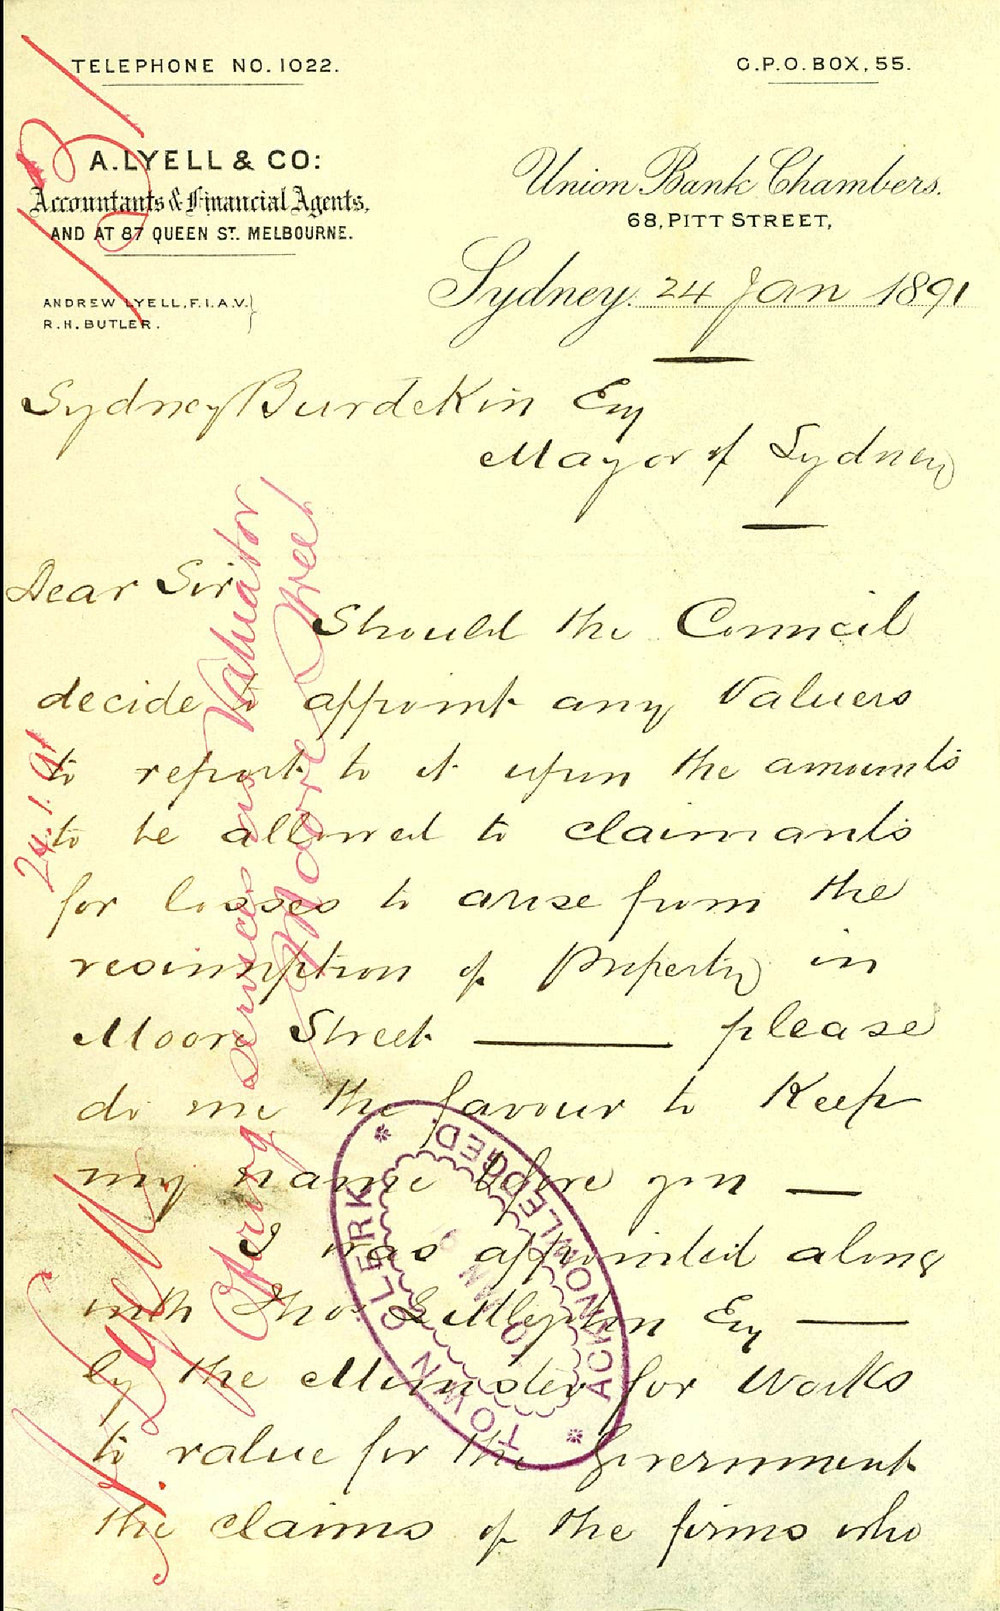 TELEPHONE NO. 1022.
G.P.O. BOX, 55.
A. LYELL & CO:
Accountants & Financial Agents,
AND AT 87 QUEEN ST. MELBOURNE.
ANDREW LYELL, F.I.A.V.
R. H. BUTLER.
Union Bank Chambers.
68, PITT STREET,
Sydney. 24 Jan 1891
Sydney Burdekin Esq
Mayor of Sydney
Dear Sir
Should the Council
decide to appoint any Valuers
to report to it upon the amounts
to be allowed to claimants
for losses to arise from the
resumption of Property in
Moore Street — please
do me the favour to Keep
my name before you —
I was appointed along
with Thos Littlejohn Esq —
by the Minister for Works
to value for the Government
the claims of the firms who
131
24.1.91
A. Lyell
Offering services as Valuator
Moore Street
TOWN CLERK
ACKNOWLEDGED